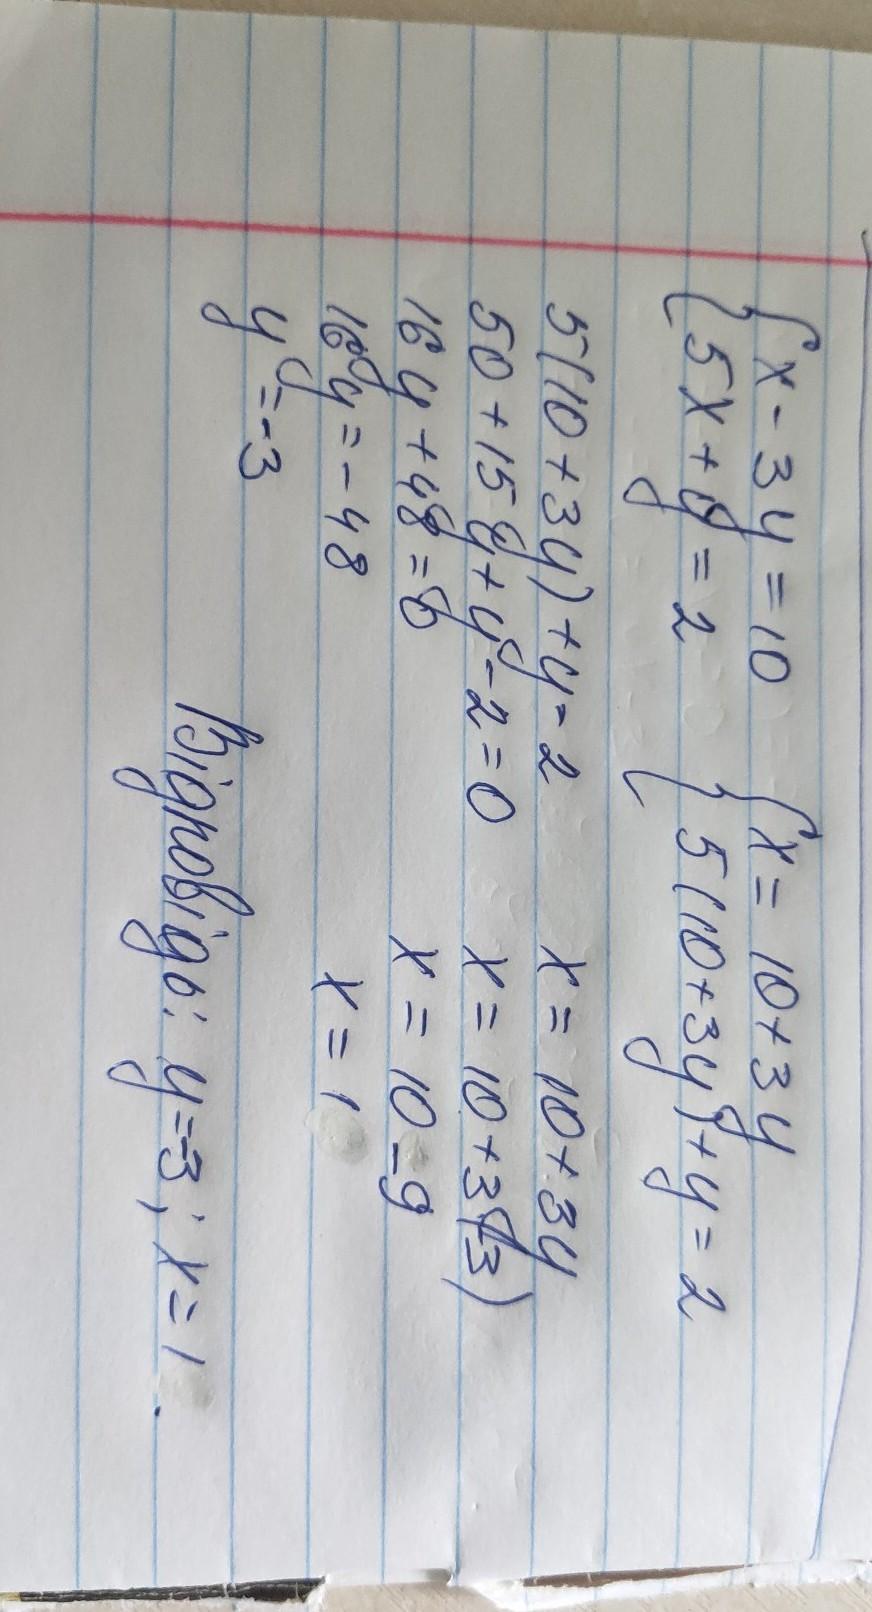 {x-3y=10 {x=10+3y
{5x+y=2 {5(10+3y)+y=2
5(10+3y)+y=2 x=10+3y
50+15y+y-2=0 x=10+3(-3)
16y+48=0 x=10-9
16y=-48 x=1
y=-3
Відповідь: y=-3; x=1.